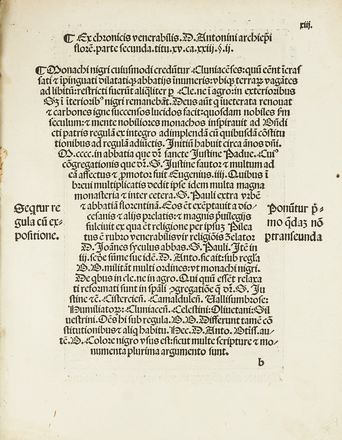 xiij.
¶ Ex chronicis venerabilis. D. Antonini archiepi
florē. parte secunda. titu. xv. ca. xxiij. §. ij.
¶ Monachi nigri cuiusmodi credūtur Cluniacēses: quū cēnt
sati ⁊ īpinguati dilatatisq; abbatijs inumeris: vbiq; terrarꝫ vagātes
ad libitū: restricti fuerūt aliqłiter p Ecle. ne ī agro: in exterioribus
Sꝫ ī īteriorib⁹ nigri remanebāt. Deus aūt q inueterata renouat
⁊ carbones igne succensos lucidos facit: quosdam nobiles sm
seculum: ⁊ mente nobiliores monachos inspirauit ad Bñdi
cti patris regulā ex integro adimplendā cū quibusdā cōstitu
tionibus ad regulā adiūctis. Initiū habuit circa ānos dñi.
M. cccc. in abbatia que dr̄ sancte Justine Padue. Cui⁹
cōgregationis que dr̄. S. Justine fautor ⁊ multum ad
eā affectus ⁊ pmotor fuit Eugenius. iiij. Quibus ī
breui multiplicatis dedit ipse idem multa magna
monasteria ⁊ inter cetera. S. Pauli extra vrbē
⁊ abbatiā florentinā. Eos ēt exēptauit a dio-
cesanis ⁊ alijs prelatis: ⁊ magnis puilegijs
fulciuit ex qua ēt religione per ipsuꝫ Pilea
tus ē rubro venerabilis vir religiōis zelator
D. Joānes syculus abbas. S. Pauli. Itē in
iij. scōe sūme sue idē. D. Anto. sic ait: sub regła
B. B. militāt multi ordines: vt monachi nigri.
De qbus in cle. ne in agro. Qui quū essēt relaxa
ti reformati sunt in spāli ꝯgregatiōe q dr̄. S. Ju
stine ⁊ē. Cistercien̄. Camaldulen̄. Vallisumbrose:
Humiliatoꝝ: Cluniacen̄. Celestini: Oliuetani: Sil
uestrini. Oēs hi sub regula. B. B. Differunt tamē cō
stitutionibus ⁊ aliq habitu. Nec. D. Anto. Btiss. au-
tē. B. Colore nigro vsus est: sicut multe scripture ⁊ mo-
numenta plurima argumento sunt.
b
Seq̄tur re
gula cū ex-
positione.
Ponūtur p̄-
mo q̄daꝫ nō
ptranseunda